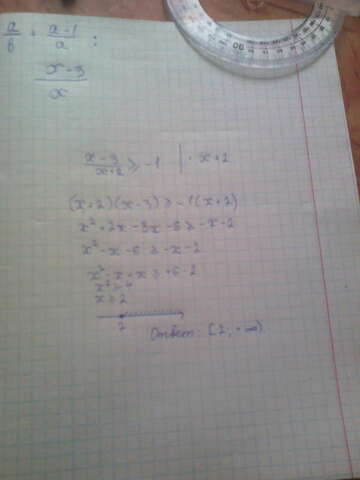 a/b + (a-1)/a :
(x-3)/x
(x-3)/(x+2) ≥ -1 | · x+2
(x+2)(x-3) ≥ -1(x+2)
x² + 2x - 3x - 6 ≥ -x - 2
x² - x - 6 ≥ -x - 2
x² - x - x ≥ +6 - 2
x² ≥ 4
x ≥ 2
2
Ответ: [2; +∞)